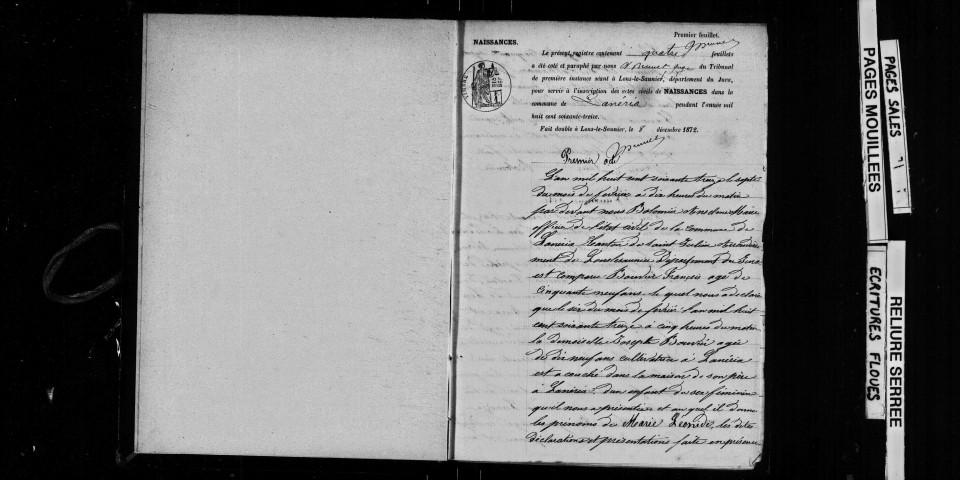 Premier feuillet.
NAISSANCES.
Le présent registre contenant quatre feuillets
a été coté et paraphé par nous Brunet juge du Tribunal
de première instance séant à Lons-le-Saunier, département du Jura,
pour servir à l'inscription des actes civils de NAISSANCES dans la
commune de Lanéria pendant l'année mil
huit cent soixante-treize.
Fait double à Lons-le-Saunier, le 8 décembre 1872.
Brunet
Premier acte
L'an mil huit cent soixante treize le sept
du mois de fevrier a dix heures du matin
par devant nous Bolomier Maire
officier de l'état civil de la commune de
Lanéria Canton de Saint Julien arrondisse
ment de Lonslesaunier Département du Jura
est comparu Bouvier François agé de
cinquante neuf ans le quel nous a declaré
que le six du mois de fevrier l'an mil huit
cent soixante treize a cinq heures du matin
la demoiselle Josephte Bouvier agée
de dix neuf ans cultivatrice à Lanéria
est acouché dans la maison de son père
à Lanéria, d'un enfant du sexe féminin
qu'il nous a présenté et au quel il donne
les prénoms de Marie Leonide, les dites
déclarations et présentations faite en présence
PAGES MOUILLEES
PAGES SALES
ECRITURES FLOUES
RELIURE SERREE